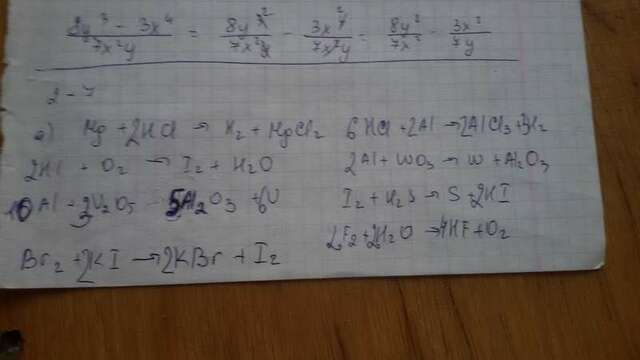 8y³ - 3x⁴ / 7x²y = 8y³ / 7x²y - 3x⁴ / 7x²y = 8y² / 7x² - 3x² / 7y
2-4
a) Hg + 2HCl → H₂ + HgCl₂ 6HCl + 2Al → 2AlCl₃ + 3H₂
2HI + O₂ → I₂ + H₂O 2Al + WO₃ → W + Al₂O₃
10Al + 3V₂O₅ → 5Al₂O₃ + 6V I₂ + H₂S → S 2HI
Br₂ + 2KI → 2KBr + I₂ 2F₂ + 2H₂O → 4HF + O₂